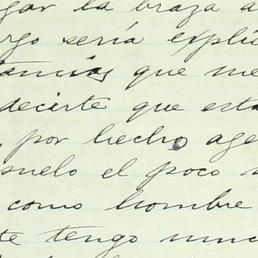 gar la braza a
rgo sería explí
tancias que me
decirte que esta
por hecho age
suelo el poco
como hombre
te tengo muc